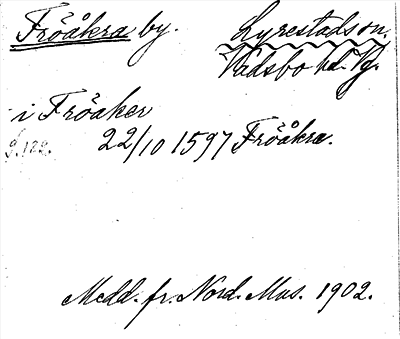 Fröåkra by. Lyrestads sn.
Vadsbo hd. Vg.
i Fröaker
22/10 1597 Fröåkra.
Medd. fr. Nord. Mus. 1902.